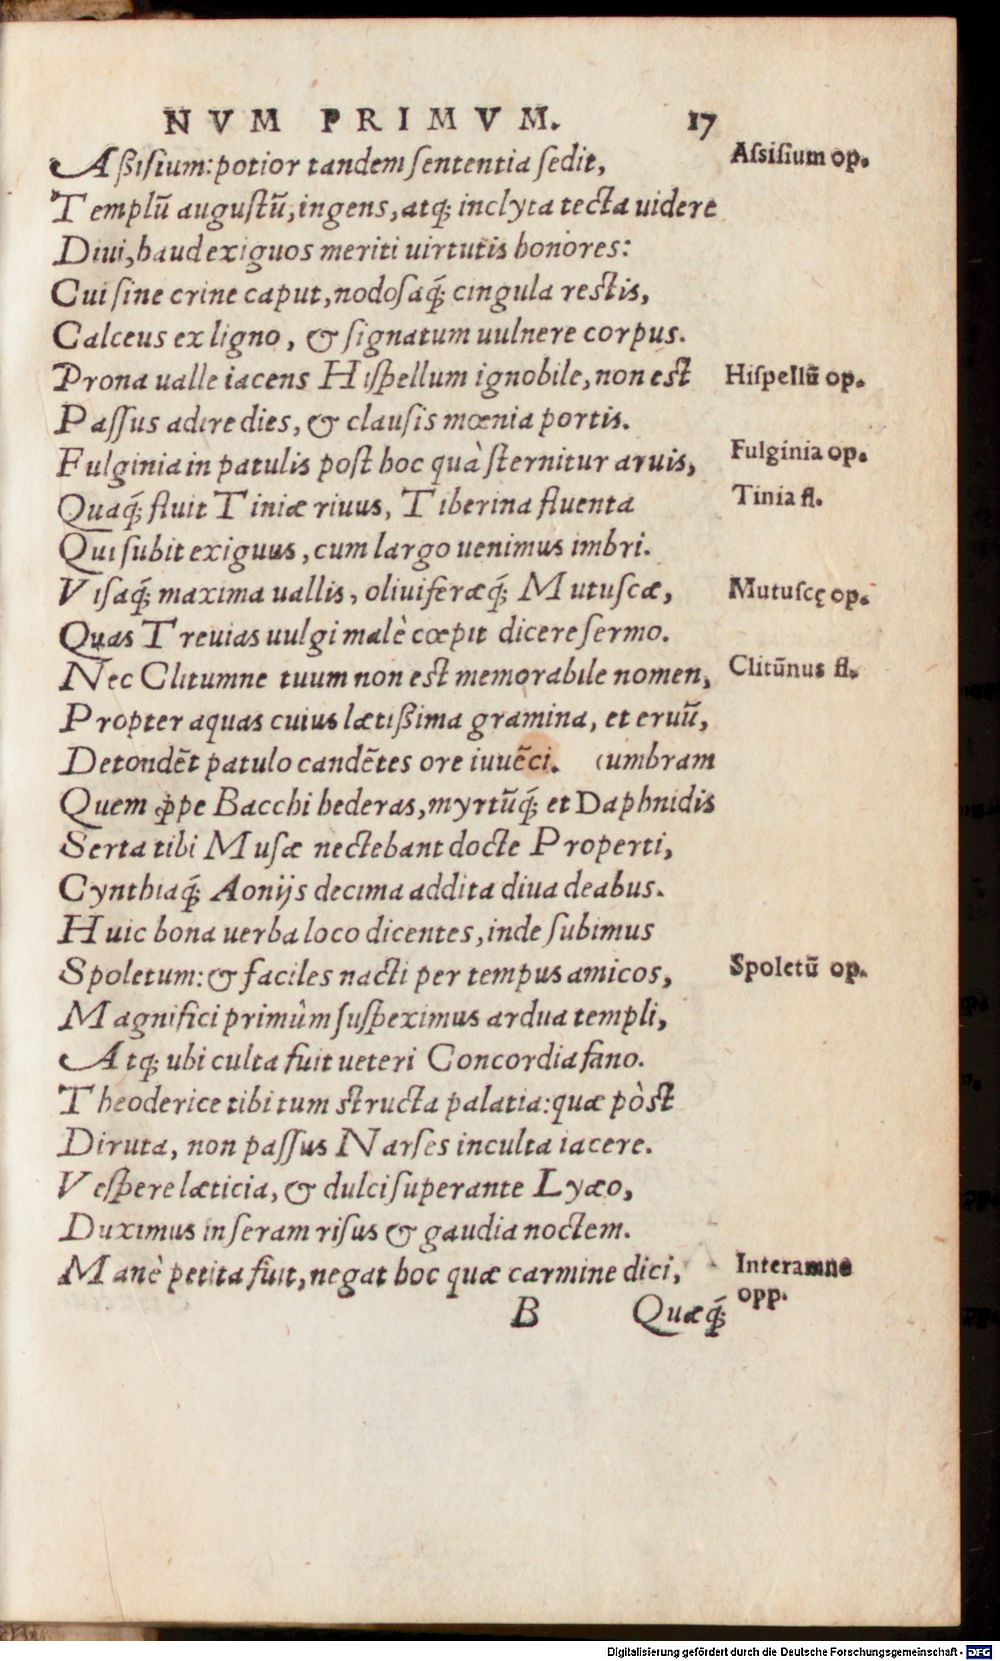 NVM PRIMVM. 17
Aßisium: potior tandem sententia sedit, Assisium op.
Templū augustū, ingens, atq́; inclyta tecta uidere
Diui, haud exiguos meriti uirtutis honores:
Cui sine crine caput, nodosaq́; cingula restis,
Calceus ex ligno, & signatum uulnere corpus.
Prona ualle iacens Hispellum ignobile, non est Hispellū op.
Passus adire dies, & clausis mœnia portis.
Fulginia in patulis post hoc quà sternitur aruis, Fulginia op.
Quaq́; fluit Tiniæ riuus, Tiberina fluenta Tinia fl.
Qui subit exiguus, cum largo uenimus imbri.
Visaq́; maxima uallis, oliuiferæq́; Mutuscæ, Mutuscę op.
Quas Treuias uulgi malè cœpit dicere sermo.
Nec Clitumne tuum non est memorabile nomen, Clitūnus fl.
Propter aquas cuius lætißima gramina, et eruū,
Detondēt patulo candētes ore iuuēci. (umbram
Quem ꝓpe Bacchi hederas, myrtūq́; et Daphnidis
Serta tibi Musæ nectebant docte Properti,
Cynthiaq́; Aonijs decima addita diua deabus.
Huic bona uerba loco dicentes, inde subimus
Spoletum: & faciles nacti per tempus amicos, Spoletū op.
Magnifici primùm suspeximus ardua templi,
Atq; ubi culta fuit ueteri Concordia fano.
Theoderice tibi tum structa palatia: quæ pòst
Diruta, non passus Narses inculta iacere.
Vespere læticia, & dulci superante Lyæo,
Duximus in seram risus & gaudia noctem.
Manè petita fuit, negat hoc quæ carmine dici, Interamne
opp.
B Quæq́;
Digitalisierung gefördert durch die Deutsche Forschungsgemeinschaft - DFG